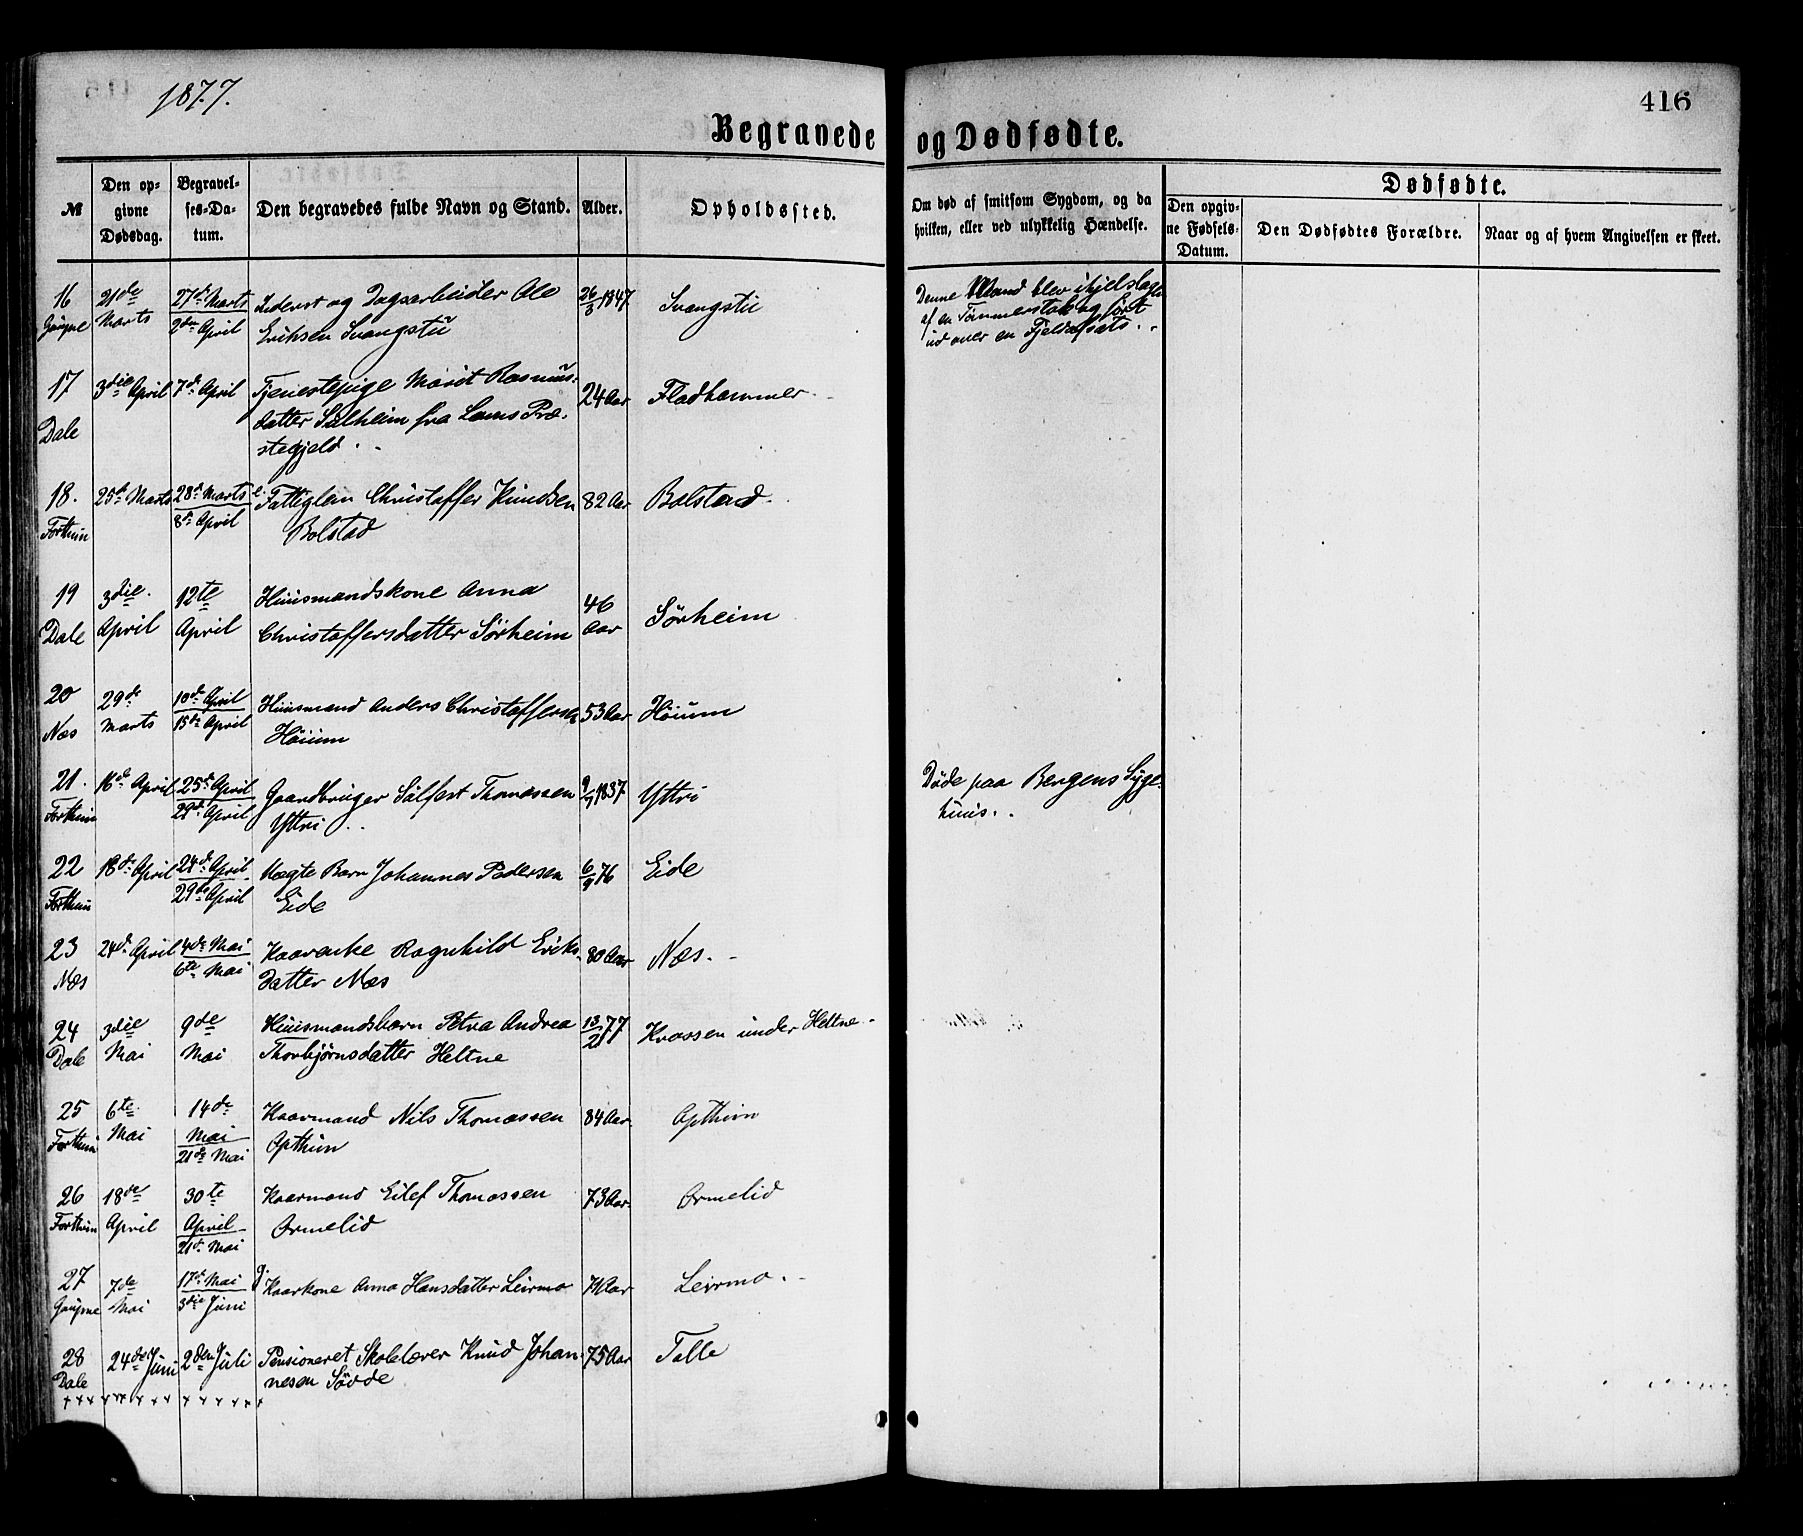 1877.
416
Begravede og Dødfødte.
№
Den opgivne Dødsdag.
Begravelses-Datum.
Den begravedes fulde Navn og Stand.
Alder.
Opholdssted.
Om død af smitsom Sygdom, og da
hvilken, eller ved ulykkelig Hændelse.
Dødfødte.
Den opgivne Fødsels-Datum.
Den Dødfødtes Forældre.
Naar og af hvem Angivelsen er skeet.
16 21de 27de Marts Inderst og Dagsarbeider Ole 26/3 1847 Svangstu Denne Mand blev ihjelslagen
Gaupne Marts 2den April Eriksen Svangstu af en Tømmerstok og ført
ud over en Fjeldafsats.
17 3die April 7de April Tjenestepige Marit Rasmus- 24 Aar Fladhammer
Dale datter Sulheim fra Loms Præ-
stegjeld
18. 25de Marts 28de Marts Fattiglem Christaffer Knudsen 82 Aar Bolstad
Forthun 8de April Bolstad
19 3die 12te Huusmandskone Anna 46 Sørheim
Dale April April Christaffersdatter Sørheim Aar
20 29de 10de April Huusmand Anders Christaffersen 53 Aar Høium
Næs Marts 15de April Høium
21. 16de April 25de April Gaardbruger Sülfest Thomassen 9/7 1837 Yttri Døde paa Bergens Syge-
Forthun 29de April Yttri huus.
22 18de April 24de April Ægte Barn Johannes Pedersen 6/9 76 Eide
Forthun 29de April Eide
23 24de April 4de Mai Kaarenke Ragnhild Eriks- 80 Aar Næs.
Næs 6te Mai datter Næs
24 3die 9de Huusmandsbarn Petra Andrea 13/2 77 Krossen under Heltne
Dale Mai Mai Thorbjørnsdatter Heltne
25 6te 14de Kaarmand Nils Thomassen 84 Aar Opthun
Forthun Mai Mai Opthun
21de Mai
26 18de 30te Kaarmand Eilef Thomassen 73 Aar Ormelid
Forthun April April Ormelid
21de Mai
27 7de 17de Mai Kaarkone Anna Hansdatter Leirmo Aar Leirmo.
Gaupne Mai 3die Juni
28 24de Juni 2den Juli Pensioneret Skolelærer Knud Johan- 75 Aar Talle
Dale nesen Søvde